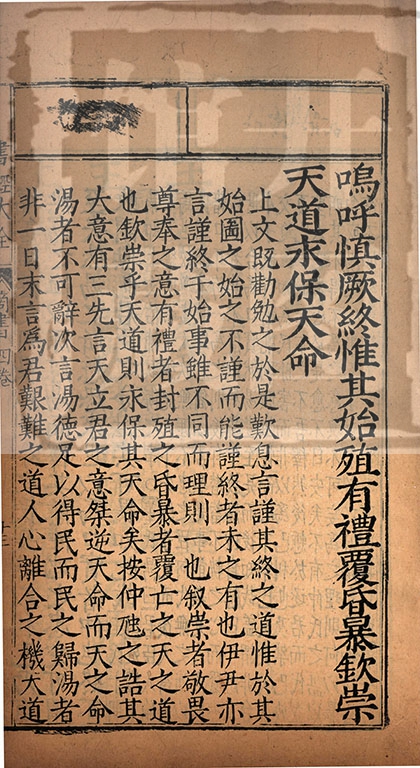 嗚呼慎厥終惟其始殖有禮覆昏暴欽崇
天道永保天命
上文既勸勉之於是歎息言謹其終之道惟於其
始圖之始之不謹而能謹終者未之有也伊尹亦
言謹終于始事雖不同而理則一也叙崇者敬畏
尊奉之意有禮者封殖之昏暴者覆亡之天之道
也欽崇乎天道則永保其天命矣按仲虺之誥其
大意有三先言天立君之意桀逆天命而天之命
湯者不可辭次言湯德足以得民而民之歸湯者
非一日末言爲君艱難之道人心離合之機天道
書經大全 商書四卷